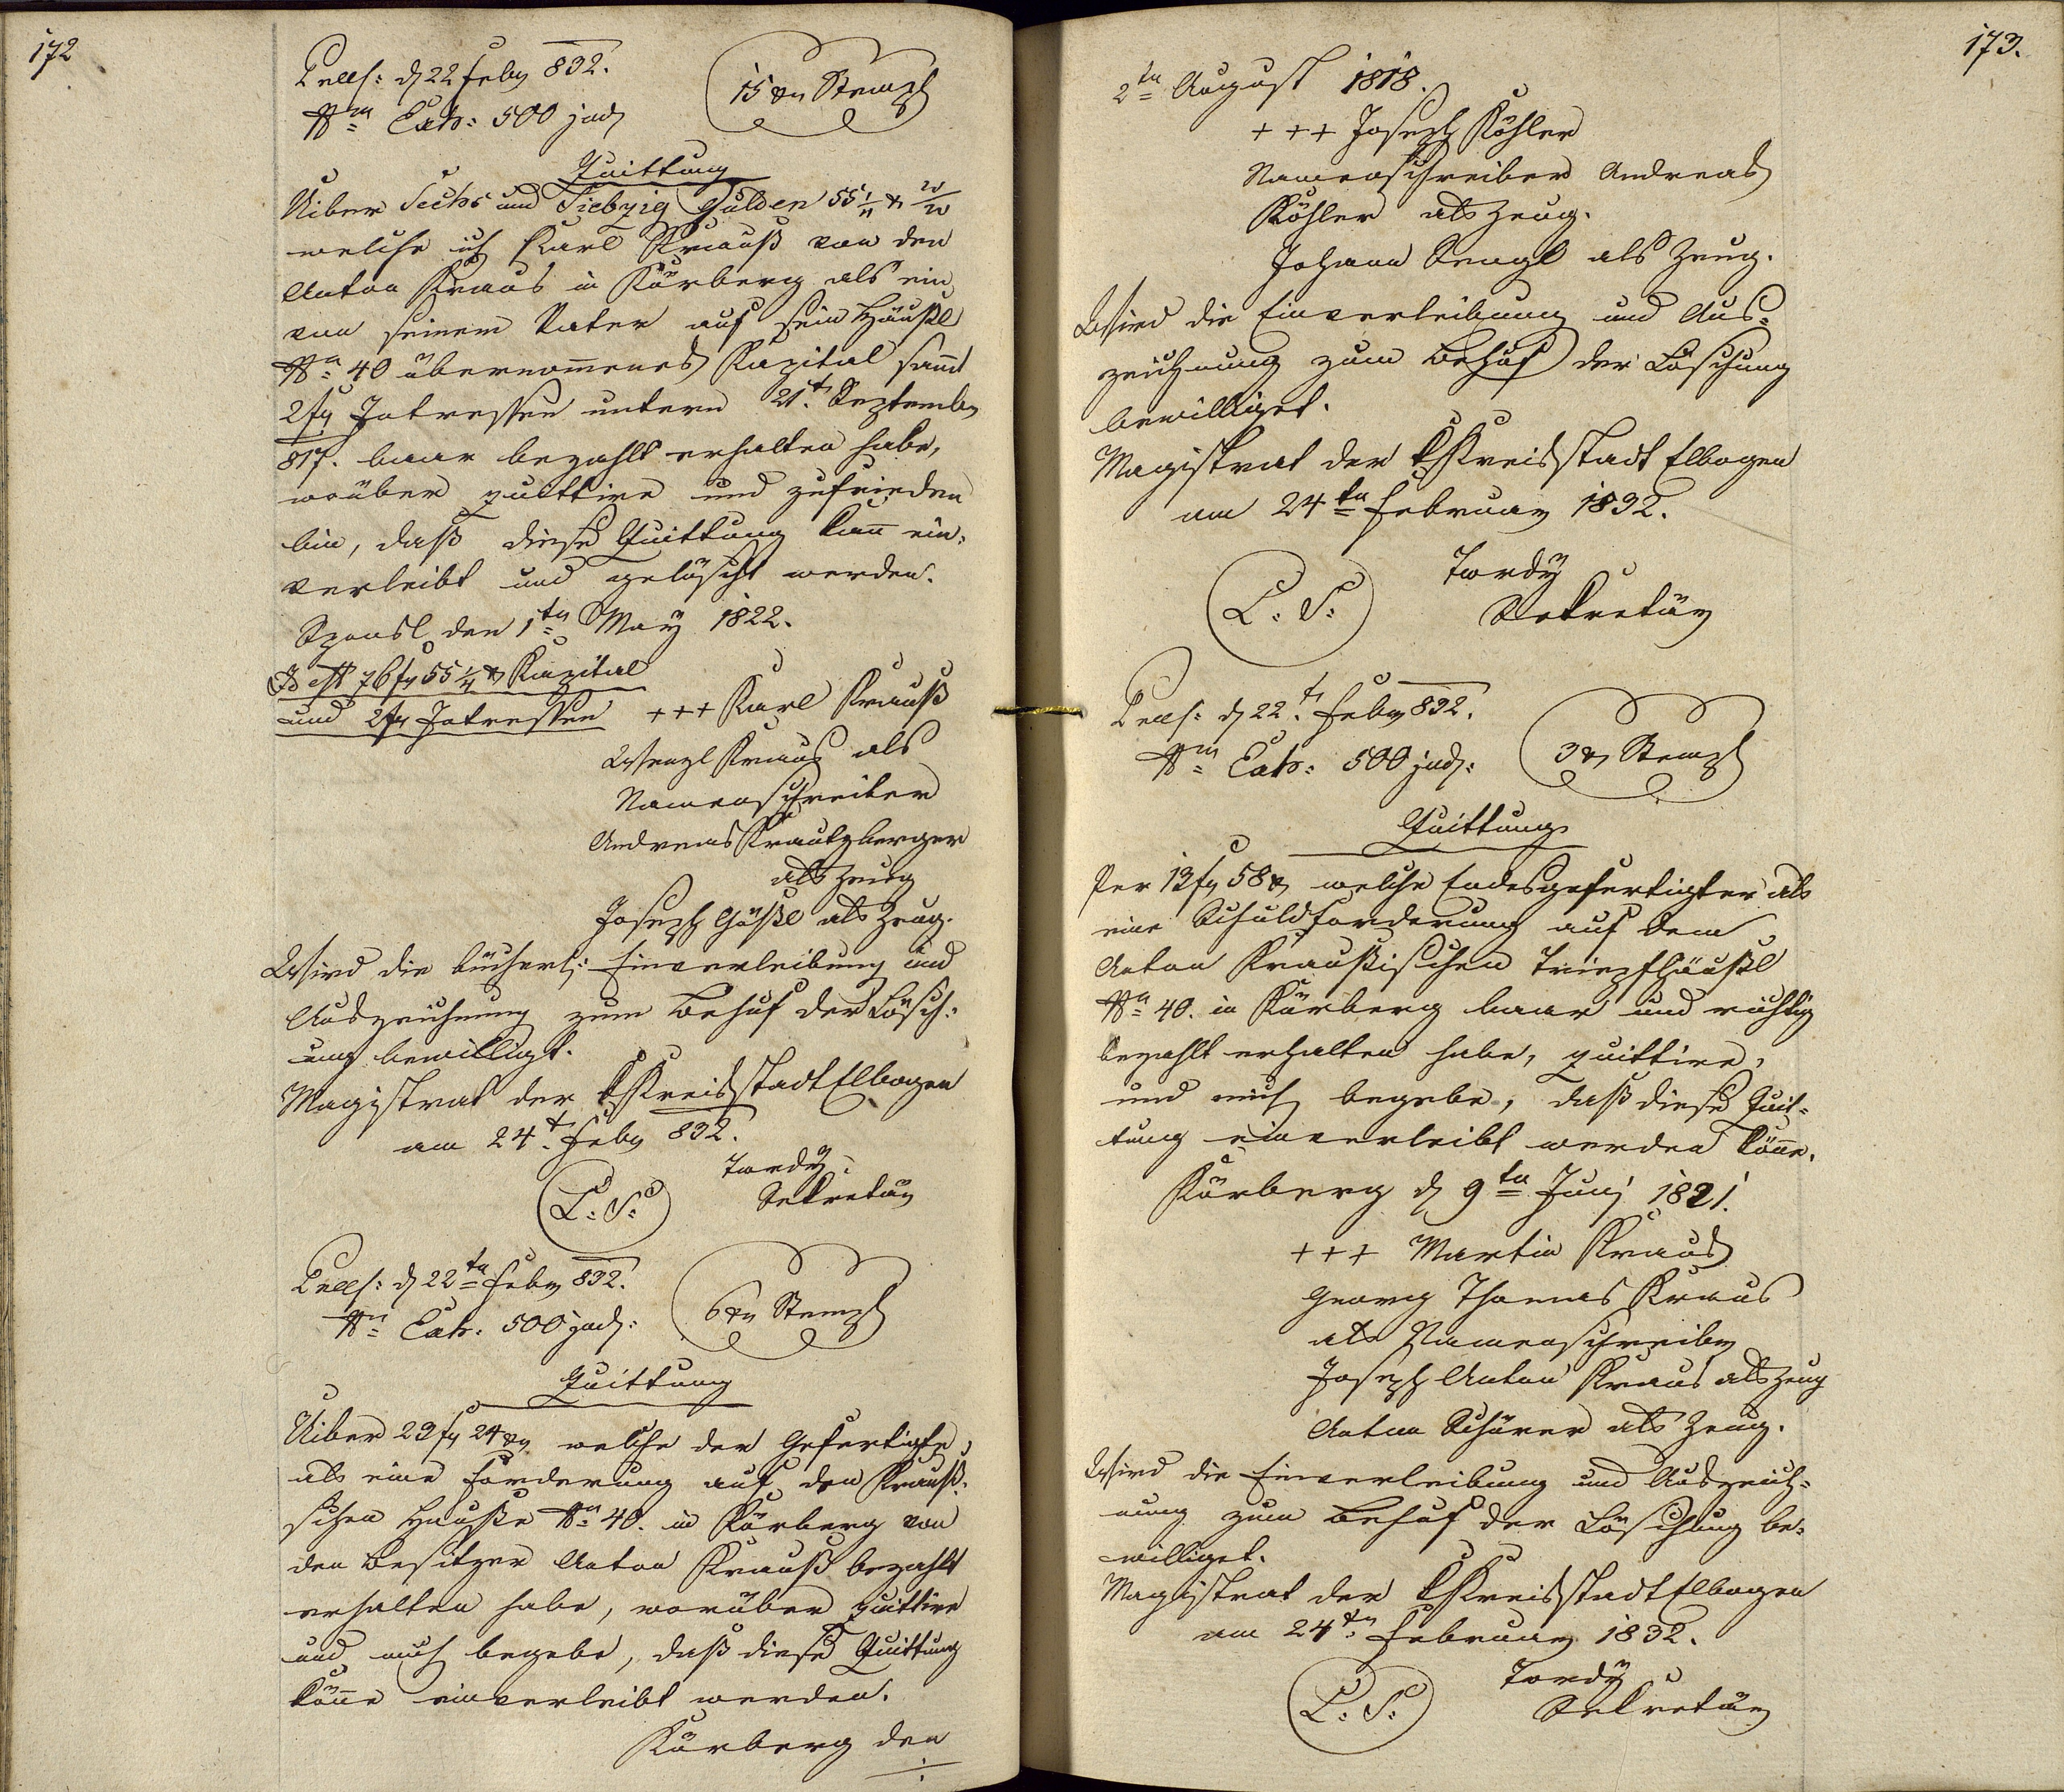 172
Präs: d 22 Feby 832.
Nm Exh: 500 jud
15 xr Stempl
Quittung
Uiber Sechs und Siebzig Gulden 55 1/4 x
welche ich Karl Krauß von den
Anton Kraus in Körberg als ein
von seinem Vater auf sein Häußl
No 40 übernom̅enes Kapital sam̅t
2 fr Intressen unterm 21t. Septembr
817. baar bezahlt erhalten habe,
worüber quittire und zufrieden
bin, daß diese Quittung kan̅ ein-
verleibt und gelöscht werden.
den 1ten May 1822.
Id est 76 fr 55 1/4 x Kapital
und 2 fr Intressen
+++ Karl Krauß
Wenzl Kraus als
Namenschreiber
Andreas Krautzberger
als Zeug
Joseph Gößl als Zeug.
Wird die bücherl: Einverleibung und
Auszeichnung zum Behuf der Lösch-
ung bewilligt.
Magistrat der K Kreisstadt Elbogen
am 24t. Feby 832.
L. S.
Tordy
Sekretär
Präs: d 22ten Feby 832.
Nm Exh: 500 jud:
6 xr Stempl
Quittung
Uiber 23 fr 24 xr welche der Gefertigte,
als eine Forderung auf den Krauß-
schen Hauße No 40. in Körberg von
den Besitzer Anton Krauß bezahlt
erhalten habe, worüber quittire
und mich begebe, daß diese Quittung
kön̅e einverleibt werden.
Körberg den
173.
2ten August 1818.
+++ Joseph Köhler
Namenschreiber Andreas
Köhler als Zeug.
Johann Lengl als Zeug.
Wird die Einverleibung und Aus-
zeichnung zum Behuf der Löschung
bewilliget.
Magistrat der K Kreisstadt Elbogen
am 24ten Februar 1832.
L. S.
Tordy
Sekretär
Präs: d 22t. Feby 832.
Nm Exh: 500 jud:
3 xr Stempl
Quittung
Per 13 fr 58 x welche Endesgefertigter als
eine Schuldforderung auf dem
Anton Kraußischen Tripfhäußl
No 40. in Körberg baar und richtig
bezahlt erhalten habe, quittire,
und mich begebe, daß diese Quit-
tung einverleibt werden kön̅e.
Körberg d 9ten Juni 1821.
+++ Martin Kraus
Georg Thomas Kraus
als Namenschreiber
Joseph Anton Kraus als Zeug
Anton Schürer als Zeug.
Wird die Einverleibung und Auszeich-
nung zum Behuf der Löschung be-
williget.
Magistrat der K Kreisstadt Elbogen
am 24t. Februar 1832.
L. S.
Tordy
Sekretär